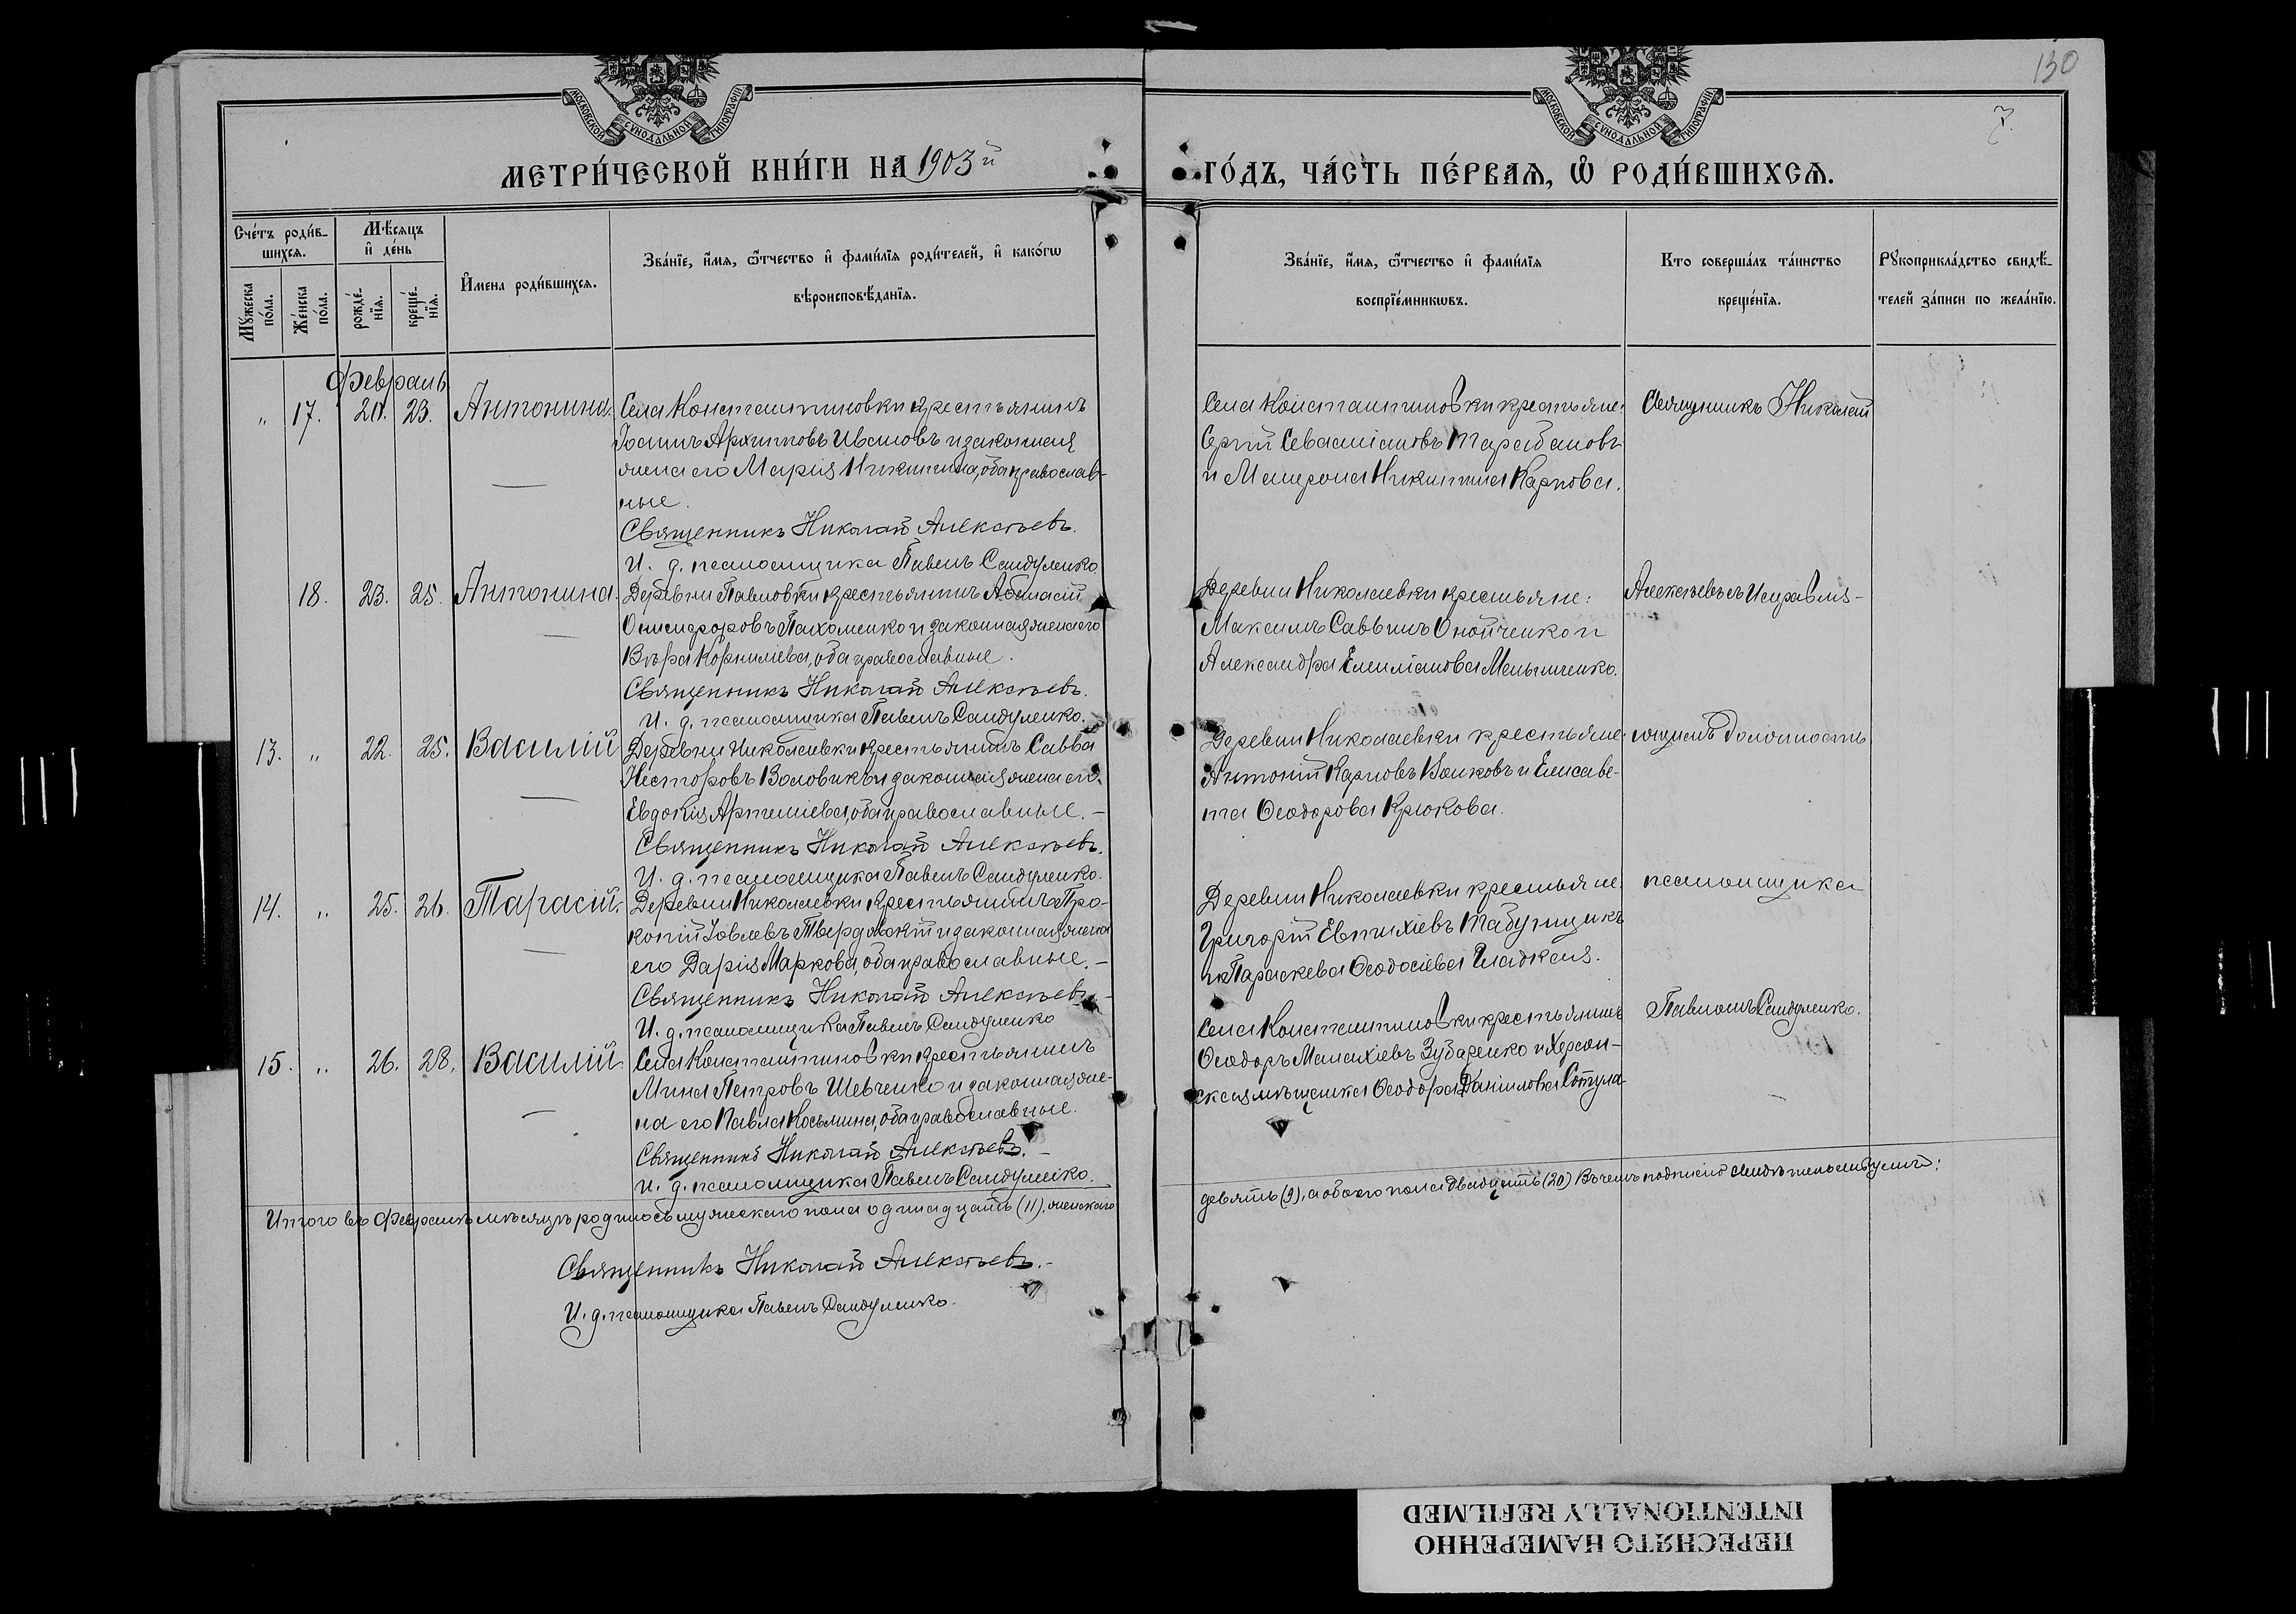 130
7.
МОСКОВСКОЙ СѴНОДАЛЬНОЙ ТИПОГРАФІИ
МОСКОВСКОЙ СѴНОДАЛЬНОЙ ТИПОГРАФІИ
МЕТРИ́ЧЕСКОЙ КНИ́ГИ НА 1903й
ГО́ДЪ, ЧА́СТЬ ПЕ́РВАЯ, Ѡ РОДИ́ВШИХСЯ.
Сче́тъ роди́в-
шихся.
Му́жеска по́ла.
Же́нска по́ла.
Мѣ́сяцъ и де́нь
рожде́-нїя.
креще́-нїя.
Имена роди́вшихся.
Зва́нїе, и́мя, ѻ́тчество и фами́лїя роди́телей, и како́гѡ
вѣроисповѣ́данїя.
Зва́нїе, и́мя, ѻ́тчество и фами́лїя
воспрїе́мникѡвъ.
Кто соверша́лъ та́инство
креще́нїя.
Рꙋкоприкла́дство свидѣ́-
телей за́писи по жела́нїю.
Февраль
" 17. 20. 23. Антонина.
Села Константиновки крестьянинъ
Іоаннъ Архиповъ Ивановъ и законная
жена его Марія Никитина, оба православ-
ные.
Священникъ Николай Алексѣевъ.
И. д. псаломщика Павелъ Сандуленко.
Села Константиновки крестьяне:
Сергій Севастіановъ Тарабановъ
и Матрона Никитина Карпова.
Священникъ Николай
18. 23. 25. Антонина.
Деревни Павловки крестьянинъ Аѳанасій
Онисифоровъ Пахоменко и законная жена его
Вѣра Корниліева, оба православные.
Священникъ Николай Алексѣевъ.
И. д. псаломщика Павелъ Сандуленко.
Деревни Николаевки крестьяне:
Максимъ Саввинъ Онойченко и
Александра Емиліанова
Алексѣевъ съ Исправля-
13. " 22. 25. Василій
Деревни Николаевки крестьянинъ Савва
Несторовъ Воловикъ и законная жена его
Евдокія Артеміева, оба православные. –
Священникъ Николай Алексѣевъ.
И. д. псаломщика Павелъ Сандуленко.
Деревни Николаевки крестьяне:
Антоній Карповъ Волковъ и Елисаве-
та Ѳеодорова Крюкова.
ющимъ должность
14. " 25. 26. Тарасій.
Деревни Николаевки крестьянинъ Про-
копій Іовлевъ и законная жена
его Дарія Маркова, оба православные. –
Священникъ Николай Алексѣевъ. –
И. д. псаломщика Павелъ Сандуленко
Деревни Николаевки крестьяне:
Григорій Евтихіевъ Табунщикъ
и Параскева Ѳеодосіева Гладкая.
псаломщика
15. " 26. 28. Василій.
Села Константиновки крестьянинъ
Мина Петровъ Шевченко и законная же-
на его Павла Косьмина, оба православные.
Священникъ Николай Алексѣевъ. –
И. д. псаломщика Павелъ Сандуленко.
Села Константиновки крестьянинъ
Ѳеодоръ Малахіевъ Зубаренко и Херсон-
ская мѣщанка Ѳеодора Даніилова
Павломъ Сандуленко.
Итого въ Февралѣ мѣсяцѣ родилось мужескаго пола одинадцать (11), женскаго
девять (9), а обоего пола двадцать (20) Въ чемъ подписомъ свидѣтельствуемъ:
Священникъ Николай Алексѣевъ. –
И. д. псаломщика Павелъ Сандуленко.
ПЕРЕСНЯТО НАМЕРЕННО
INTENTIONALLY REFILMED